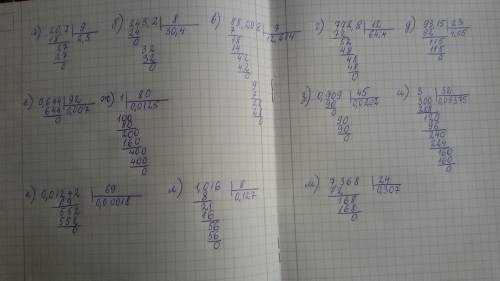 а) 20,7 | 9
18 | 2,3
27
27
0
б) 243,2 | 8
24 | 30,4
32
32
0
в) 88,298 | 7
7 | 12,614
18
14
42
42
0
9
7
28
28
0
г) 772,8 | 12
72 | 64,4
52
48
48
48
0
д) 93,15 | 23
92 | 4,05
115
115
0
е) 0,644 | 92
644 | 0,007
0
ж) 1 | 80
100 | 0,0125
80
200
160
400
400
0
з) 0,909 | 45
90 | 0,0202
90
90
0
и) 3 | 32
300 | 0,09375
288
120
96
240
224
160
160
0
к) 0,01242 | 69
69 | 0,00018
552
552
0
л) 1,016 | 8
8 | 0,127
21
16
56
56
0
м) 7,368 | 24
72 | 0,307
168
168
0